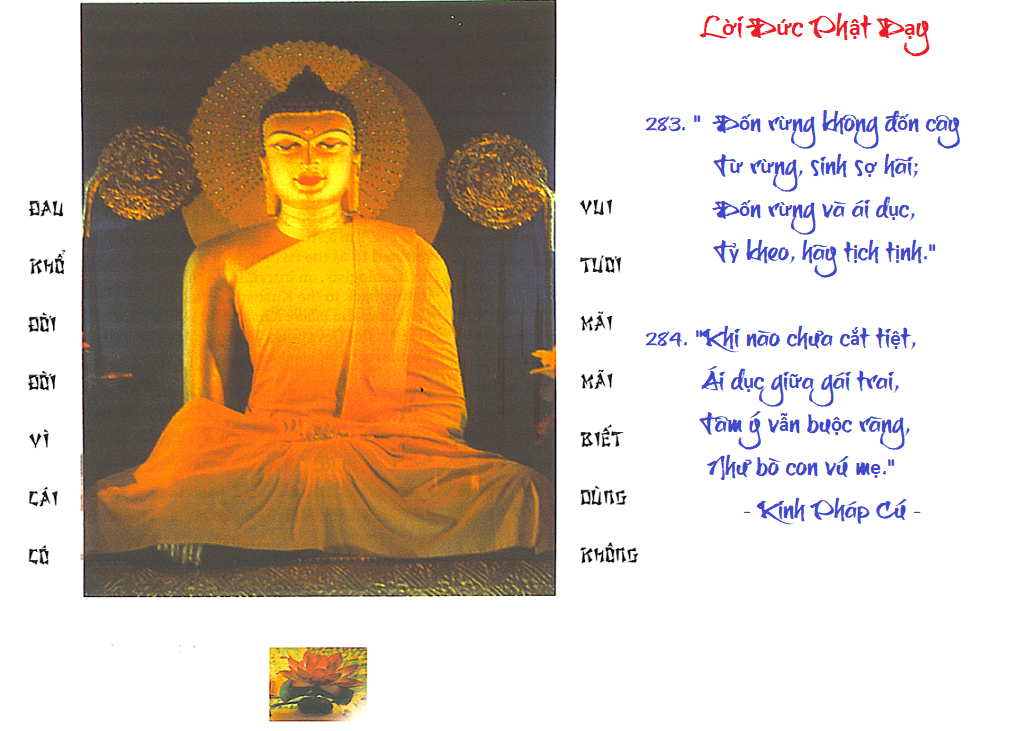 Lời Đức Phật Dạy
ĐAU
KHỔ
ĐỜI
ĐỜI
VÌ
CÁI
CÓ
VUI
TƯƠI
MÃI
MÃI
BIẾT
DÙNG
KHÔNG
283. " Đốn rừng không đốn cây
Từ rừng, sinh sợ hãi;
Đốn rừng và ái dục,
Tỷ kheo, hãy tịch tịnh."
284. "Khi nào chưa cắt tiệt,
Ái dục giữa gái trai,
Tâm ý vẫn buộc ràng,
Như bò con vú mẹ."
- Kinh Pháp Cú -